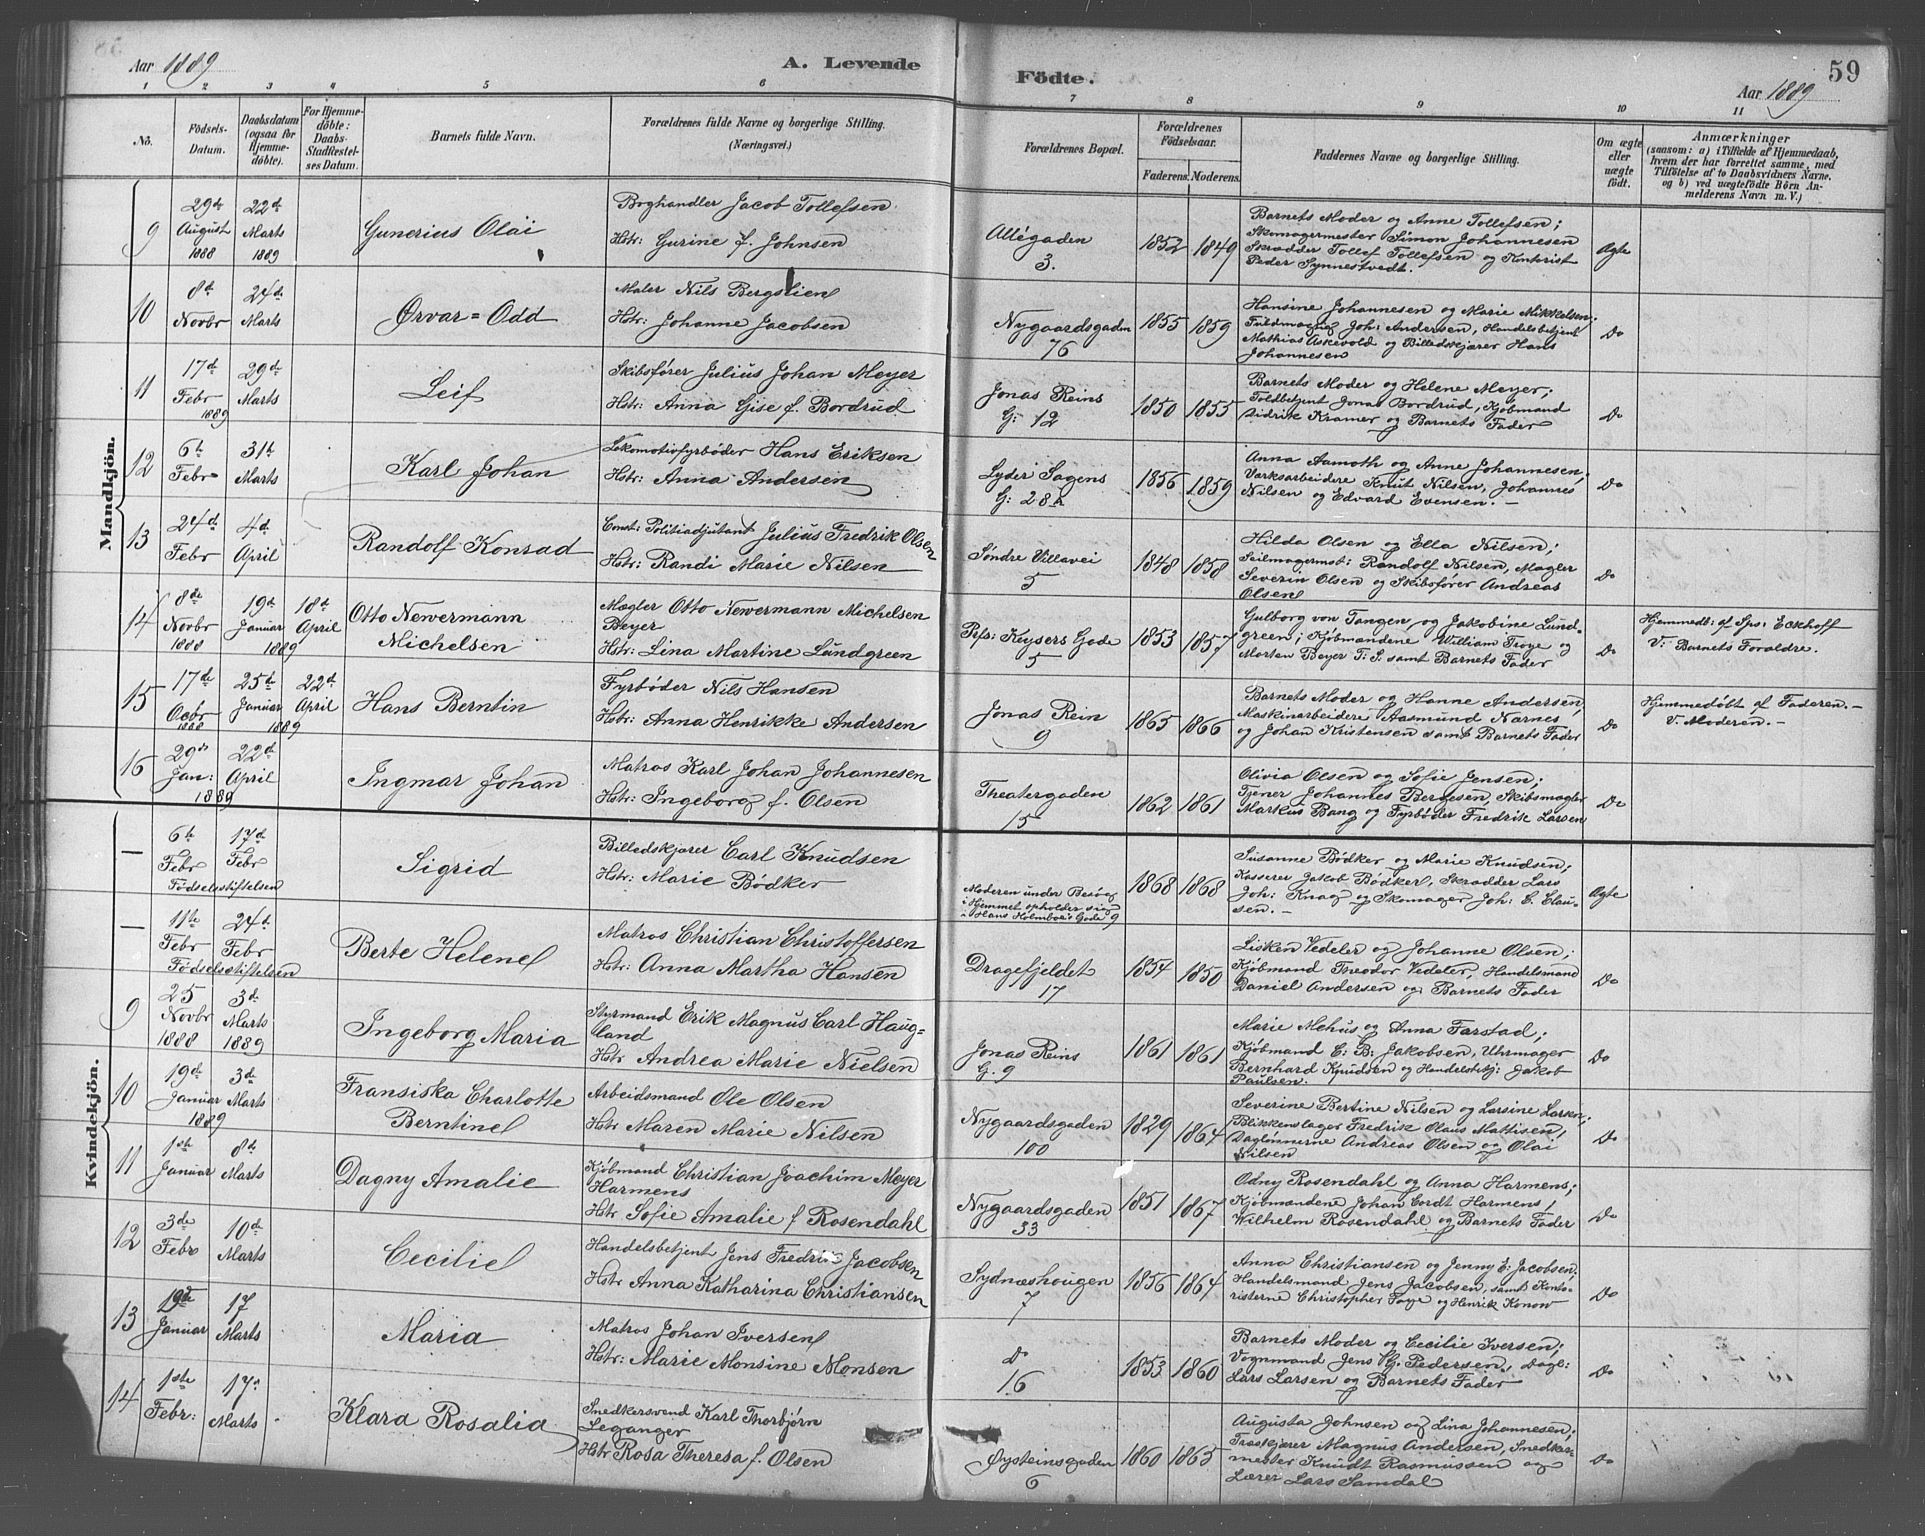 Aar 1889
A. Levende
Födte.
59
Aar 1889
1 2 3 4 5 6 7 8 9 10 11
No.
Födsels-Datum.
Daabsdatum (ogsaa for Hjemme-döbte).
For Hjemme-döbte: Daabs-Stadfæstel-ses Datum.
Barnets fulde Navn.
Forældrenes fulde Navne og borgerlige Stilling. (Næringsvei.)
Forældrenes Bopæl.
Forældrenes Födselsaar.
Faderens. Moderens.
Faddernes Navne og borgerlige Stilling.
Om ægte eller uægte födt.
Anmærkninger
(saasom: a) i Tilfælde af Hjemmedaab, hvem der har forrettet samme, med Tilföielse af to Daabsvidners Navne, og b) ved uægtefödte Börn Anmelderens Navn m. V.)
Mandkjön.
9
29de August 1888
22de Marts 1889
Gunerius Olai
Boghandler Jacob Tollefsen
Hstr: Gurine f. Johnsen
Allégaden 3.
1852 1849
Barnets Moder og Anne Tollefsen;
Skomagermester Simon Johannesen
Skrædder Tollef Tollefsen og Kontorist
Peder Synnestvedt.
Ægte
10
8de Novbr
24de Marts
Ørvar=Odd
Maler Nils Bergslien
Hstr: Johanne Jacobsen
Nygaardsgaden 76
1855 1859
Hansine Johannesen og Marie Mikkelsen;
Fuldmægtig Joh: Andersen, Handelsbetjent
Mathias Askevold og Billedskjærer Hans
Johannesen
Do
11
17de Febr 1889
29de Marts
Leif
Skibsfører Julius Johan Meyer
Hstr: Anna Gise f. Bordrud
Jonas Reins G: 12
1850 1855
Barnets Moder og Helene Meyer;
Toldbetjent Jonas Bordrud, Kjøbmand
Didrik Kramer og Barnets Fader
Do
12
6te Febr
31te Marts
Karl Johan
Lokomotivfyrbøder Hans Eriksen
Hstr: Anna Andersen
Lyder Sagens G: 28 a
1856 1859
Anna Aamoth og Anne Johannesen;
Værksarbeidere Knut Nilsen, Johannes
Nilsen og Edvard Evensen. —
Do
13
24de Febr
4de April
Randolf Konrad
Const: Politiadjutant Julius Fredrik Olsen
Hstr: Randi Marie Nilsen
Søndre Villavei 5
1848 1858
Hilda Olsen og Ella Nilsen;
Seilmagermst: Randolf Nilsen, Mægler
Severin Olsen og Skibsfører Andreas
Olsen
Do
14
8de Novbr 1888
19de Januar 1889
18de April
Otto Newermann Michelsen
Mægler Otto Newermann Michelsen
Beyer
Hstr: Lina Martine Lundgreen
Prfs: Keysers Gade 5
1853 1857
Gulborg von Tangen og Jakobine Lund-
green; Kjøbmandene William Troye og
Morten Beyer T. S. samt Barnets Fader
Do
Hjemmedb: af Sps: Eckhoff
V: Barnets Forældre.
15
17de Octbr 1888
25de Januar 1889
22de April
Hans Berntin
Fyrbøder Nils Hansen
Hstr: Anna Henrikke Andersen
Jonas Rein 9
1865 1866
Barnets Moder og Hanne Andersen;
Maskinarbeidere Aasmund Nærnes
og Johan Kristensen samt Barnets Fader
Do
Hjemmedøbt af Faderen. —
V. Moderen. —
16
29de Jan: 1889
22de April
Ingmar Johan
Matros Karl Johan Johannesen
Hstr: Ingeborg f. Olsen
Theatergaden 15
1862 1861
Olivia Olsen og Sofie Jensen;
Tjener Johannes Bergesen, Skibsmægler
Markus Bang og Fyrbøder Fredrik Larsen
Do
Kvindekjön.
—
6te Febr
17de Febr
Fødselsstiftelsen
Sigrid
Billedskjærer Carl Knudsen
Hstr: Marie Bødker
Moderen under Besøg
i Hjemmet opholder sig
i Hans Holmboe's Gade 9
1868 1868
Susanne Bødker og Marie Knudsen;
Kasserer Jakob Bødker, Skrædder Lars
Joh: Knag og Skomager Joh: C. Clau-
sen. —
Ægte
—
11te Febr
24de Febr
Fødselsstiftelsen
Berte Helene
Matros Christian Christoffersen
Hstr: Anna Martha Hansen
Dragefjeldet 17
1854 1850
Lisken Vedeler og Johanne Olsen;
Kjøbmand Theodor Vedeler, Handelsmand
Daniel Andersen og Barnets Fader
Do
9
25 Novbr 1888
3de Marts 1889
Ingeborg Maria
Styrmand Erik Magnus Carl Haug-
land
Hstr Andrea Marie Nielsen
Jonas Reins G. 9
1861 1861
Marie Mehus og Anna Farstad;
Kjøbmand C: B: Jakobsen, Uhrmager
Bernhard Knudsen og Handelsbetj: Jakob
Paulsen.
Do
10
19de Januar 1889
3de Marts
Fransiska Charlotte Berntine
Arbeidsmand Ole Olsen
Hstr Maren Marie Nilsen
Nygaardsgaden 100
1829 1864
Severine Bertine Nilsen og Larsine Larsen;
Blikkenslager Fredrik Olaus Mattisen,
Daglønnerne Andreas Olsen og Olai
Nilsen
Do
11
1ste Januar
8de Marts
Dagny Amalie
Kjøbmand Christian Joachim Meyer
Harmens
Hstr Sofie Amalie f Rosendahl
Nygaardsgaden 33
1851 1867
Odny Rosendahl og Anna Harmens;
Kjøbmandene Johan Cordt Harmens,
Wilhelm Rosendahl og Barnets Fader
Do
12
3de Febr
10de Marts
Cecilie
Handelsbetjent Jens Fredrik Jacobsen
Hstr Anna Katharina Christiansen
Sydnæshougen 7
1856 1864
Anna Christiansen og Jenny E: Jacobsen;
Handelsmand Jens Jacobsen, samt Konto-
risterne Christopher Faye og Henrik Konow
Do
13
19de Januar
17 Marts
Maria
Matros Johan Iversen
Hstr: Marie Monsine Monsen
Do 16
1853 1860
Barnets Moder og Cecilie Iversen;
Vognmand Jens Pedersen, Dagl:
Lars Larsen og Barnets Fader
Do
14
1ste Febr:
17de Marts
Klara Rosalia
Snedkersvend Karl Thorbjørn
Leganger
Hstr Rosa Theresa f. Olsen
Øysteinsgaden 6
1860 1865
Augusta Johnsen og Lina Johannesen;
Træskjærer Magnus Andersen, Snedker-
mester Knudt Rasmussen og
Lærer Lars Samdal
Do